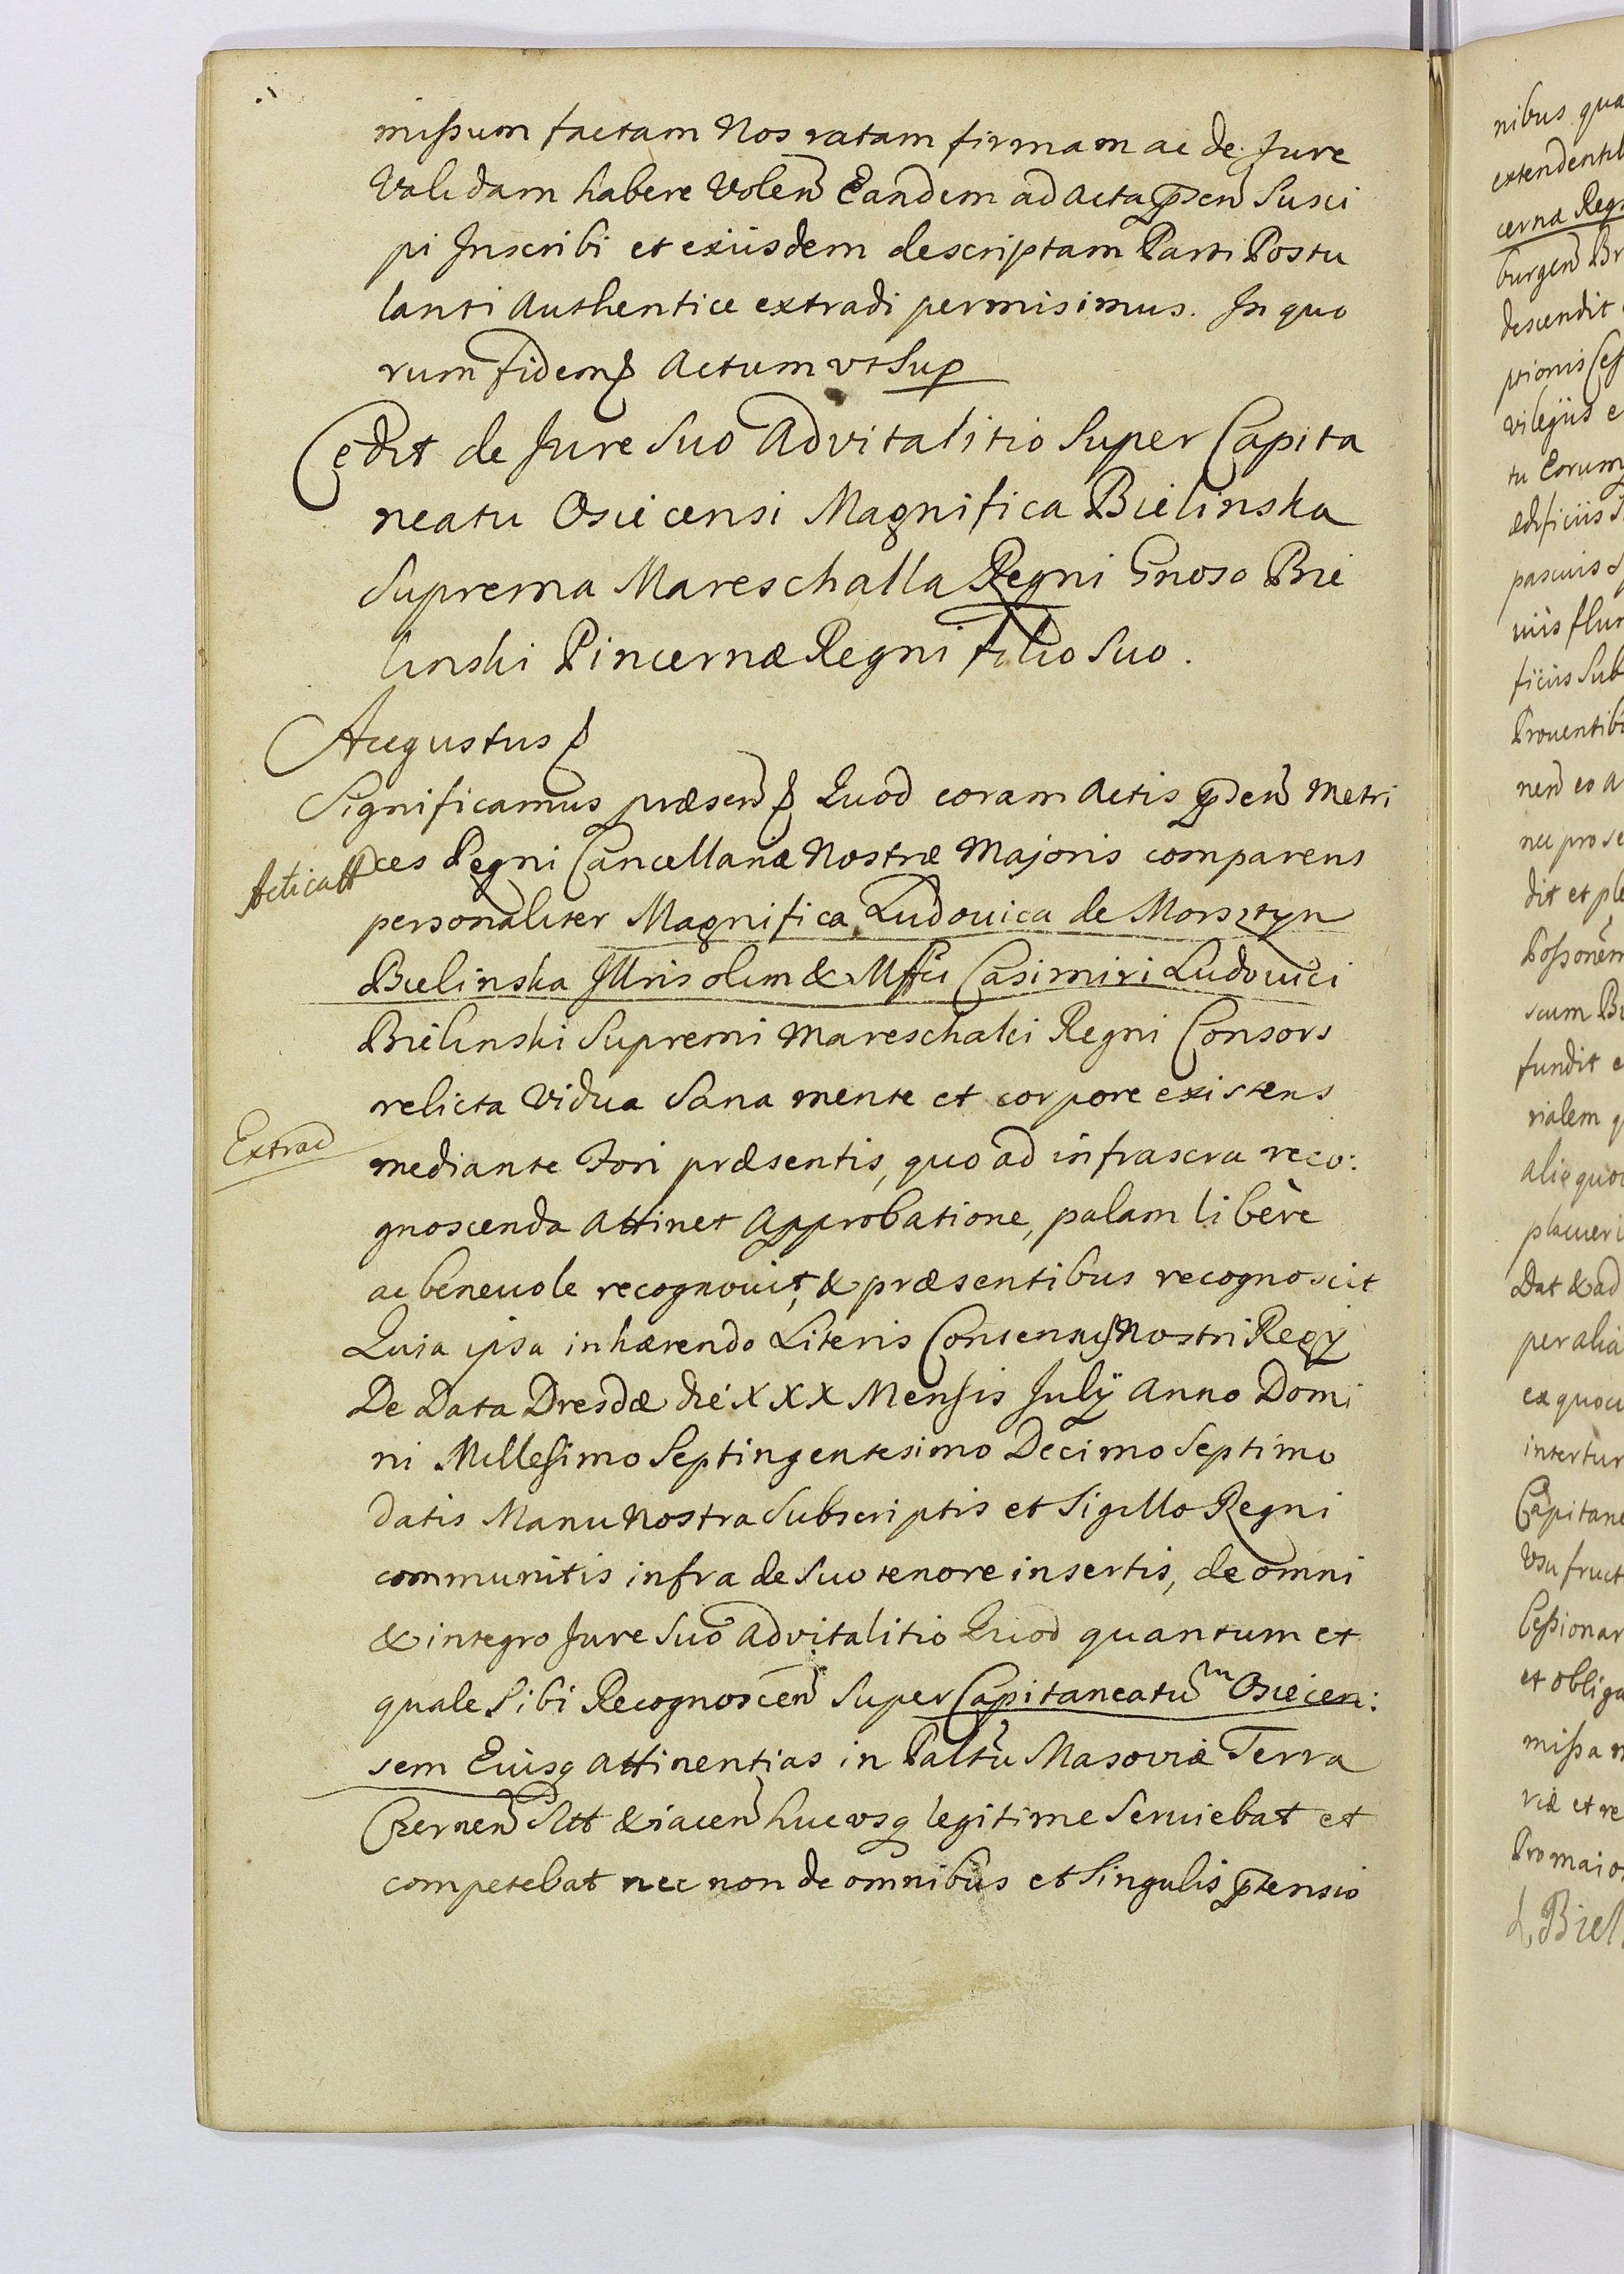 missum factam Nos ratam firmam ac de Jure
Validam habere Volen Eandem ad Acta pñsen Susci
pi Inscribi et eiusdem descriptam Parti Postu
lanti Authentice extradi permisimus. In quo
rum fidem Actum vt Sup
Cedit de Jure Suo Advitalitio Super Capita
neatu Osiecensi Magnifica Bielinska
Suprema Mareschalla Regni Gnoso Bie
linski Pincernæ Regni filio Suo.
Augustus
Significamus præsen Quod coram Actis pñsen Metri
ces Regni Cancellariæ Nostræ Majoris comparens
Acticatt
personaliter Magnifica Ludouica de Morsztyn
Bielinska Illris olim & Mffci Casimiri Ludouici
Bielinski Supremi Mareschalci Regni Consors
relicta Vidua Sana mente et corpore existens
Extrad
mediante Fori præsentis, quo ad infrascra reco:
gnoscenda Attinet Approbatione, palam libère
ac beneuole recognouit, & præsentibus recognoscit
Quia ipsa inhærendo Literis Consensus Nostri Regy
De Data Dresdæ die XXX Mensis Julÿ Anno Domi
ni Millesimo Septingentesimo Decimo Septimo
datis Manu Nostra Subscriptis et Sigillo Regni
communitis infra de Suo tenore insertis, de omni
& integro Jure Suo Advitalitio Quod quantum et
quale Sibi Recognoscen Super Capitaneatum Osiecen:
sem Eiusq Attinentias in Paltu Masoviæ Terra
Czernen Sitt & iacen huc vsq legitime Seruiebat et
competebat nec non de omnibus et Singulis ptensio
nibus qua
extendentib
cerna Regn
burgen Br
descendit
ptionis Cess
vilegÿs e
tu Eorum
ædificiis
pascuis
uiis flum
ficiis Sub
Prouentib
nen eo a
nec pro se
dit et ple
Possonem
scum Bi
fundit e
rialem q
alie quoc
placueri
Dat & ad
per alia
ex quocu
intertur
Capitane
Vsu fruct
Cessionar
et obliga
missa
riæ et re
Pro maio
L Biel